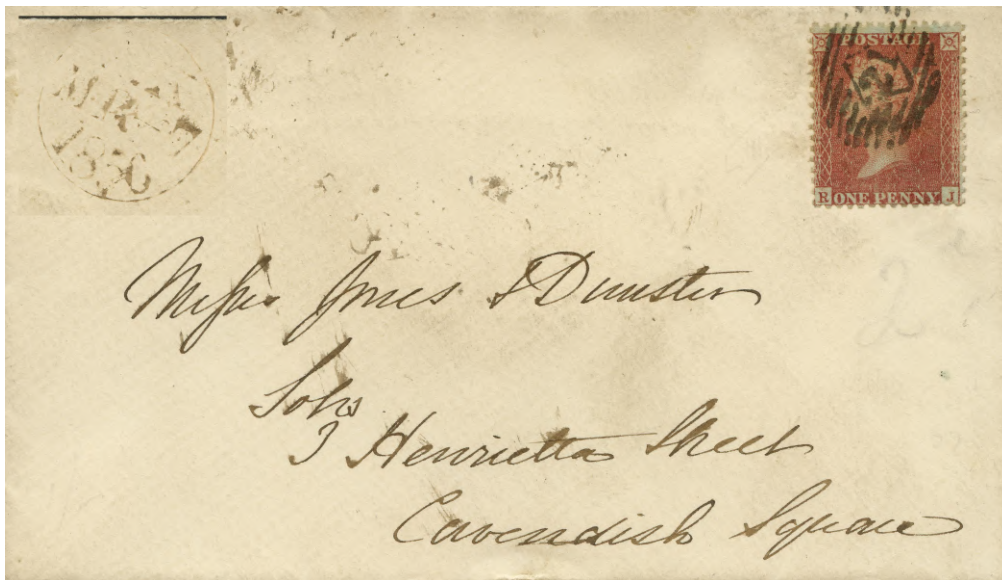 1850
POSTAGE
21
R ONE PENNY J
Messrs Jones & Dunster
Solrs
3 Henrietta Street
Cavendish Square
2